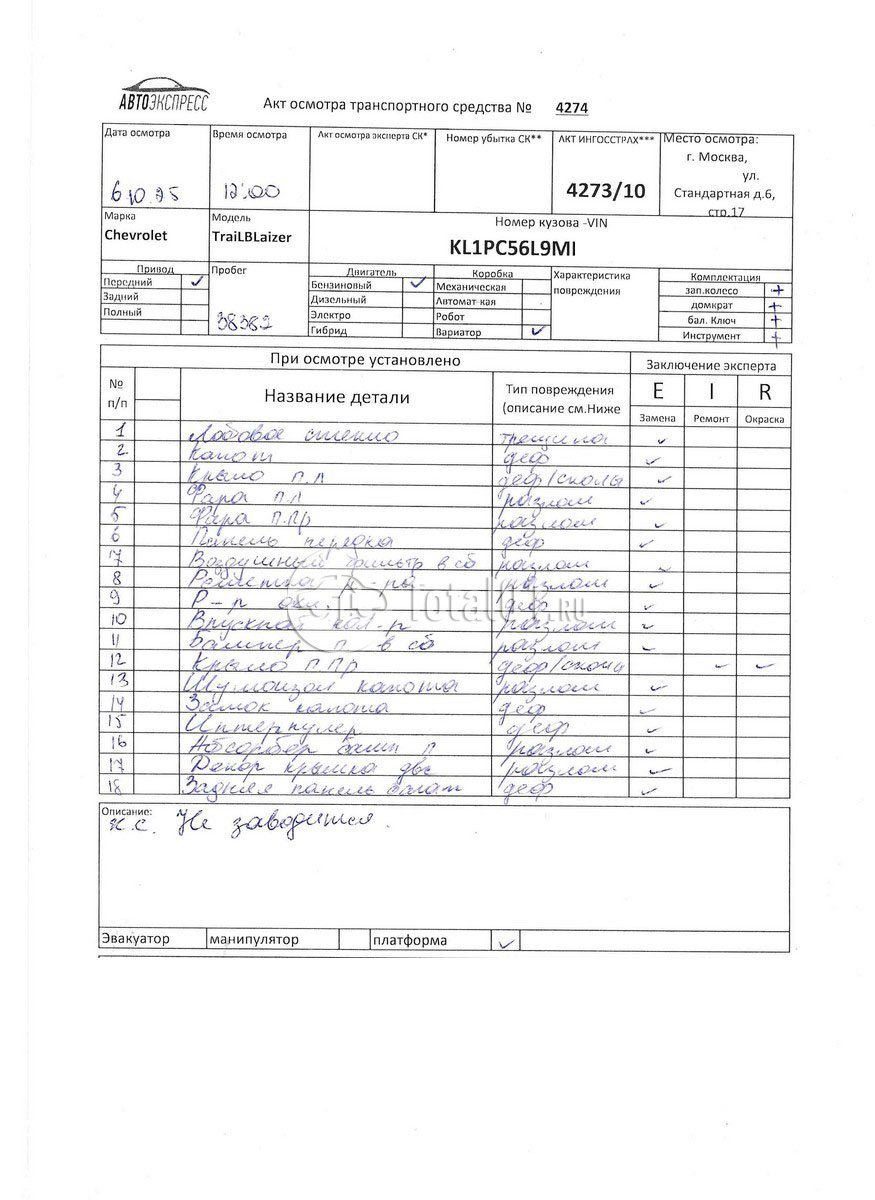 АВТОЭКСПРЕСС
Акт осмотра транспортного средства № 4274
Дата осмотра Время осмотра Акт осмотра эксперта СК* Номер убытка СК** АКТ ИНГОССТРАХ*** Место осмотра:
6.10.25 12:00 4273/10 г. Москва,
ул.
Стандартная д.6,
стр.17
Марка Модель Номер кузова -VIN
Chevrolet TraiLBLaizer KL1PC56L9MI
Привод Пробег Двигатель Коробка Характеристика повреждения Комплектация
Передний ✓ Бензиновый ✓ Механическая зап.колесо +
Задний Дизельный Автомат-кая домкрат +
Полный 38382 Электро Робот бал. Ключ +
Гибрид Вариатор ✓ Инструмент +
При осмотре установлено Заключение эксперта
№ п/п Название детали Тип повреждения (описание см.Ниже E I R
Замена Ремонт Окраска
1 Лобовое стекло трещина ✓
2 Капот деф ✓
3 Крыло п.л деф/сколы ✓
4 Фара п.л разлом ✓
5 Фара п.пр разлом ✓
6 Панель передка деф ✓
7 Воздушный фильтр в сб разлом ✓
8 Решетка разлом ✓
9 Р-р деф ✓
10 Впускной кол-р разлом ✓
11 Бампер п в сб разлом ✓
12 Крыло п пр деф/сколы ✓ ✓
13 Шумоизол капота разлом ✓
14 Замок капота деф ✓
15 Интеркулер деф ✓
16 Абсорбер бамп п разлом ✓
17 Декор крышка двс разлом ✓
18 Задняя панель багаж деф ✓
Описание:
к.с. Не заводится.
Эвакуатор манипулятор платформа ✓
Total01.RU